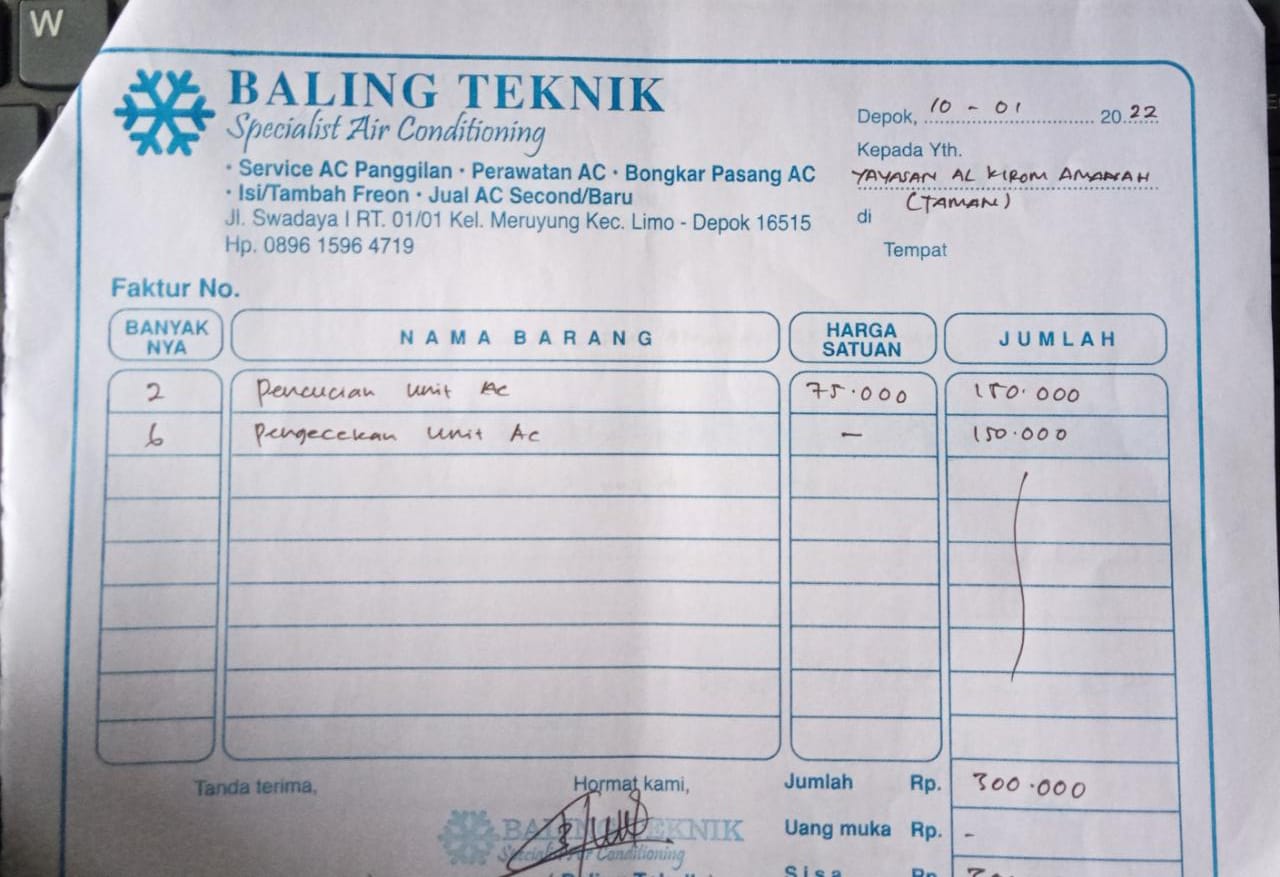 W
BALING TEKNIK
Specialist Air Conditioning
• Service AC Panggilan • Perawatan AC • Bongkar Pasang AC
• Isi/Tambah Freon • Jual AC Second/Baru
Jl. Swadaya I RT. 01/01 Kel. Meruyung Kec. Limo - Depok 16515
Hp. 0896 1596 4719
Depok, 10 - 01 2022
Kepada Yth.
YAYASAN AL KIROM AMANAH
(TAMAN)
di
Tempat
Faktur No.
BANYAK NYA NAMA BARANG HARGA SATUAN JUMLAH
2 Pencucian Unit Ac 75.000 150.000
6 Pengecekan Unit Ac - 150.000
Tanda terima, Hormat kami, Jumlah Rp. 300.000
BALING TEKNIK Uang muka Rp. -
Specialist Air Conditioning
Sisa Rp.